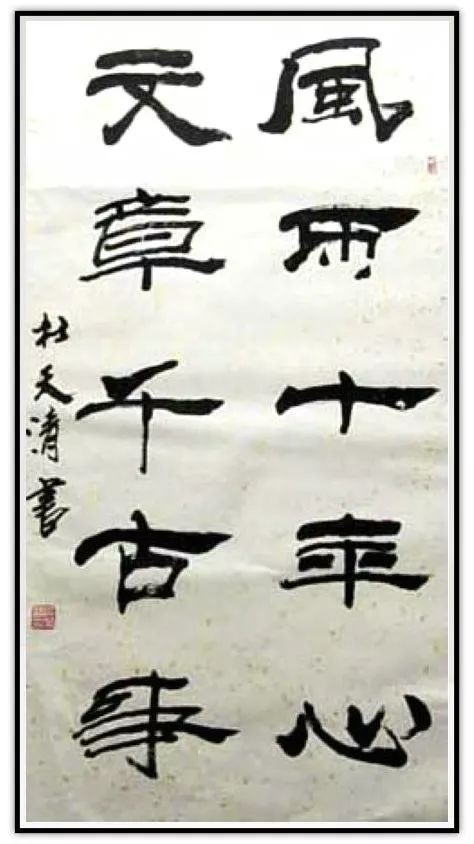 風雨十年心
文章千古事
杜天清書